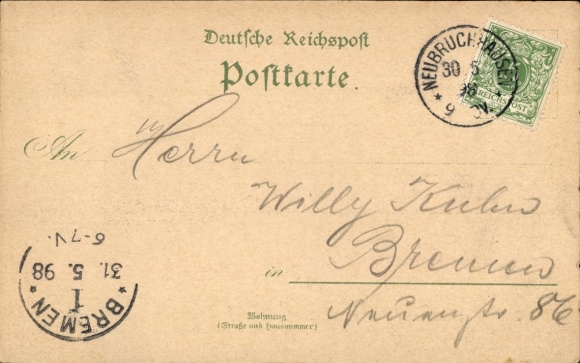 Deutsche Reichspost
Postkarte.
NEUBRUCHHAUSEN
30 5
98
* 9 *
REICHSPOST
An Herrn
Willy Kuhn
in Bremen
Wohnung
(Straße und Hausnummer)
Neuenstr. 86
BREMEN
* 1 *
31. 5. 98
6-7 V.